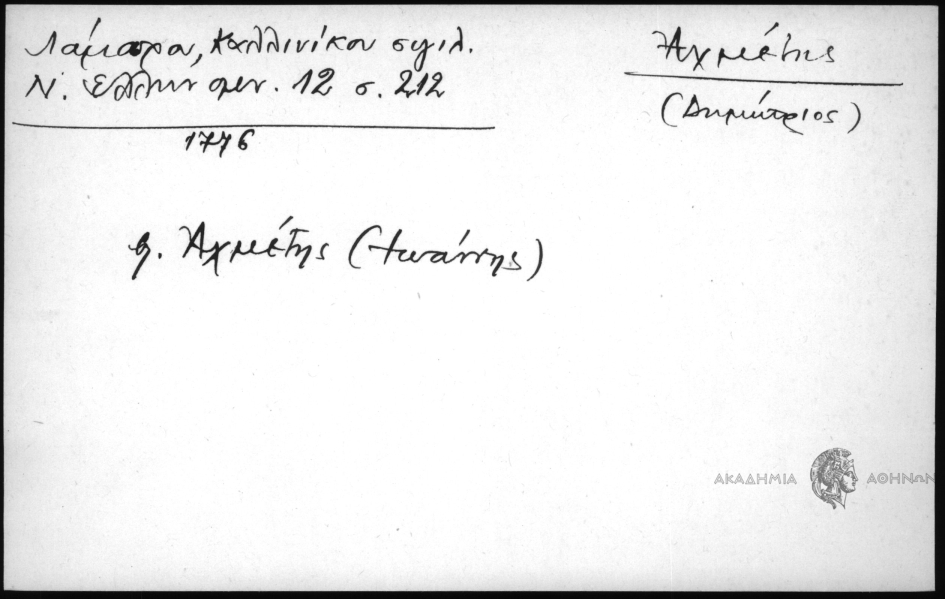 Λάμπρου, Καλλινίκου σιγιλ.
Ν. Ελλην μν. 12 σ. 212
1776
Ἀχμέτης
(Δημήτριος)
β. Ἀχμέτης (Ἰωάννης)
ΑΚΑΔΗΜΙΑ ΑΘΗΝΩΝ